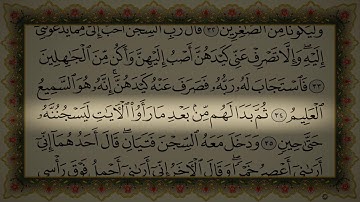 وَلَيَكُونًا مِّنَ ٱلصَّٰغِرِينَ ٣٢ قَالَ رَبِّ ٱلسِّجْنُ أَحَبُّ إِلَىَّ مِمَّا يَدْعُونَنِىٓ
إِلَيْهِ ۖ وَإِلَّا تَصْرِفْ عَنِّى كَيْدَهُنَّ أَصْبُ إِلَيْهِنَّ وَأَكُن مِّنَ ٱلْجَٰهِلِينَ
٣٣ فَٱسْتَجَابَ لَهُۥ رَبُّهُۥ فَصَرَفَ عَنْهُ كَيْدَهُنَّ ۚ إِنَّهُۥ هُوَ ٱلسَّمِيعُ
ٱلْعَلِيمُ ٣٤ ثُمَّ بَدَا لَهُم مِّنۢ بَعْدِ مَا رَأَوُا۟ ٱلْءَايَٰتِ لَيَسْجُنُنَّهُۥ
حَتَّىٰ حِينٍ ٣٥ وَدَخَلَ مَعَهُ ٱلسِّجْنَ فَتَيَانِ ۖ قَالَ أَحَدُهُمَآ إِنِّىٓ
أَرَىٰنِىٓ أَعْصِرُ خَمْرًا ۖ وَقَالَ ٱلْءَاخَرُ إِنِّىٓ أَرَىٰنِىٓ أَحْمِلُ فَوْقَ رَأْسِى